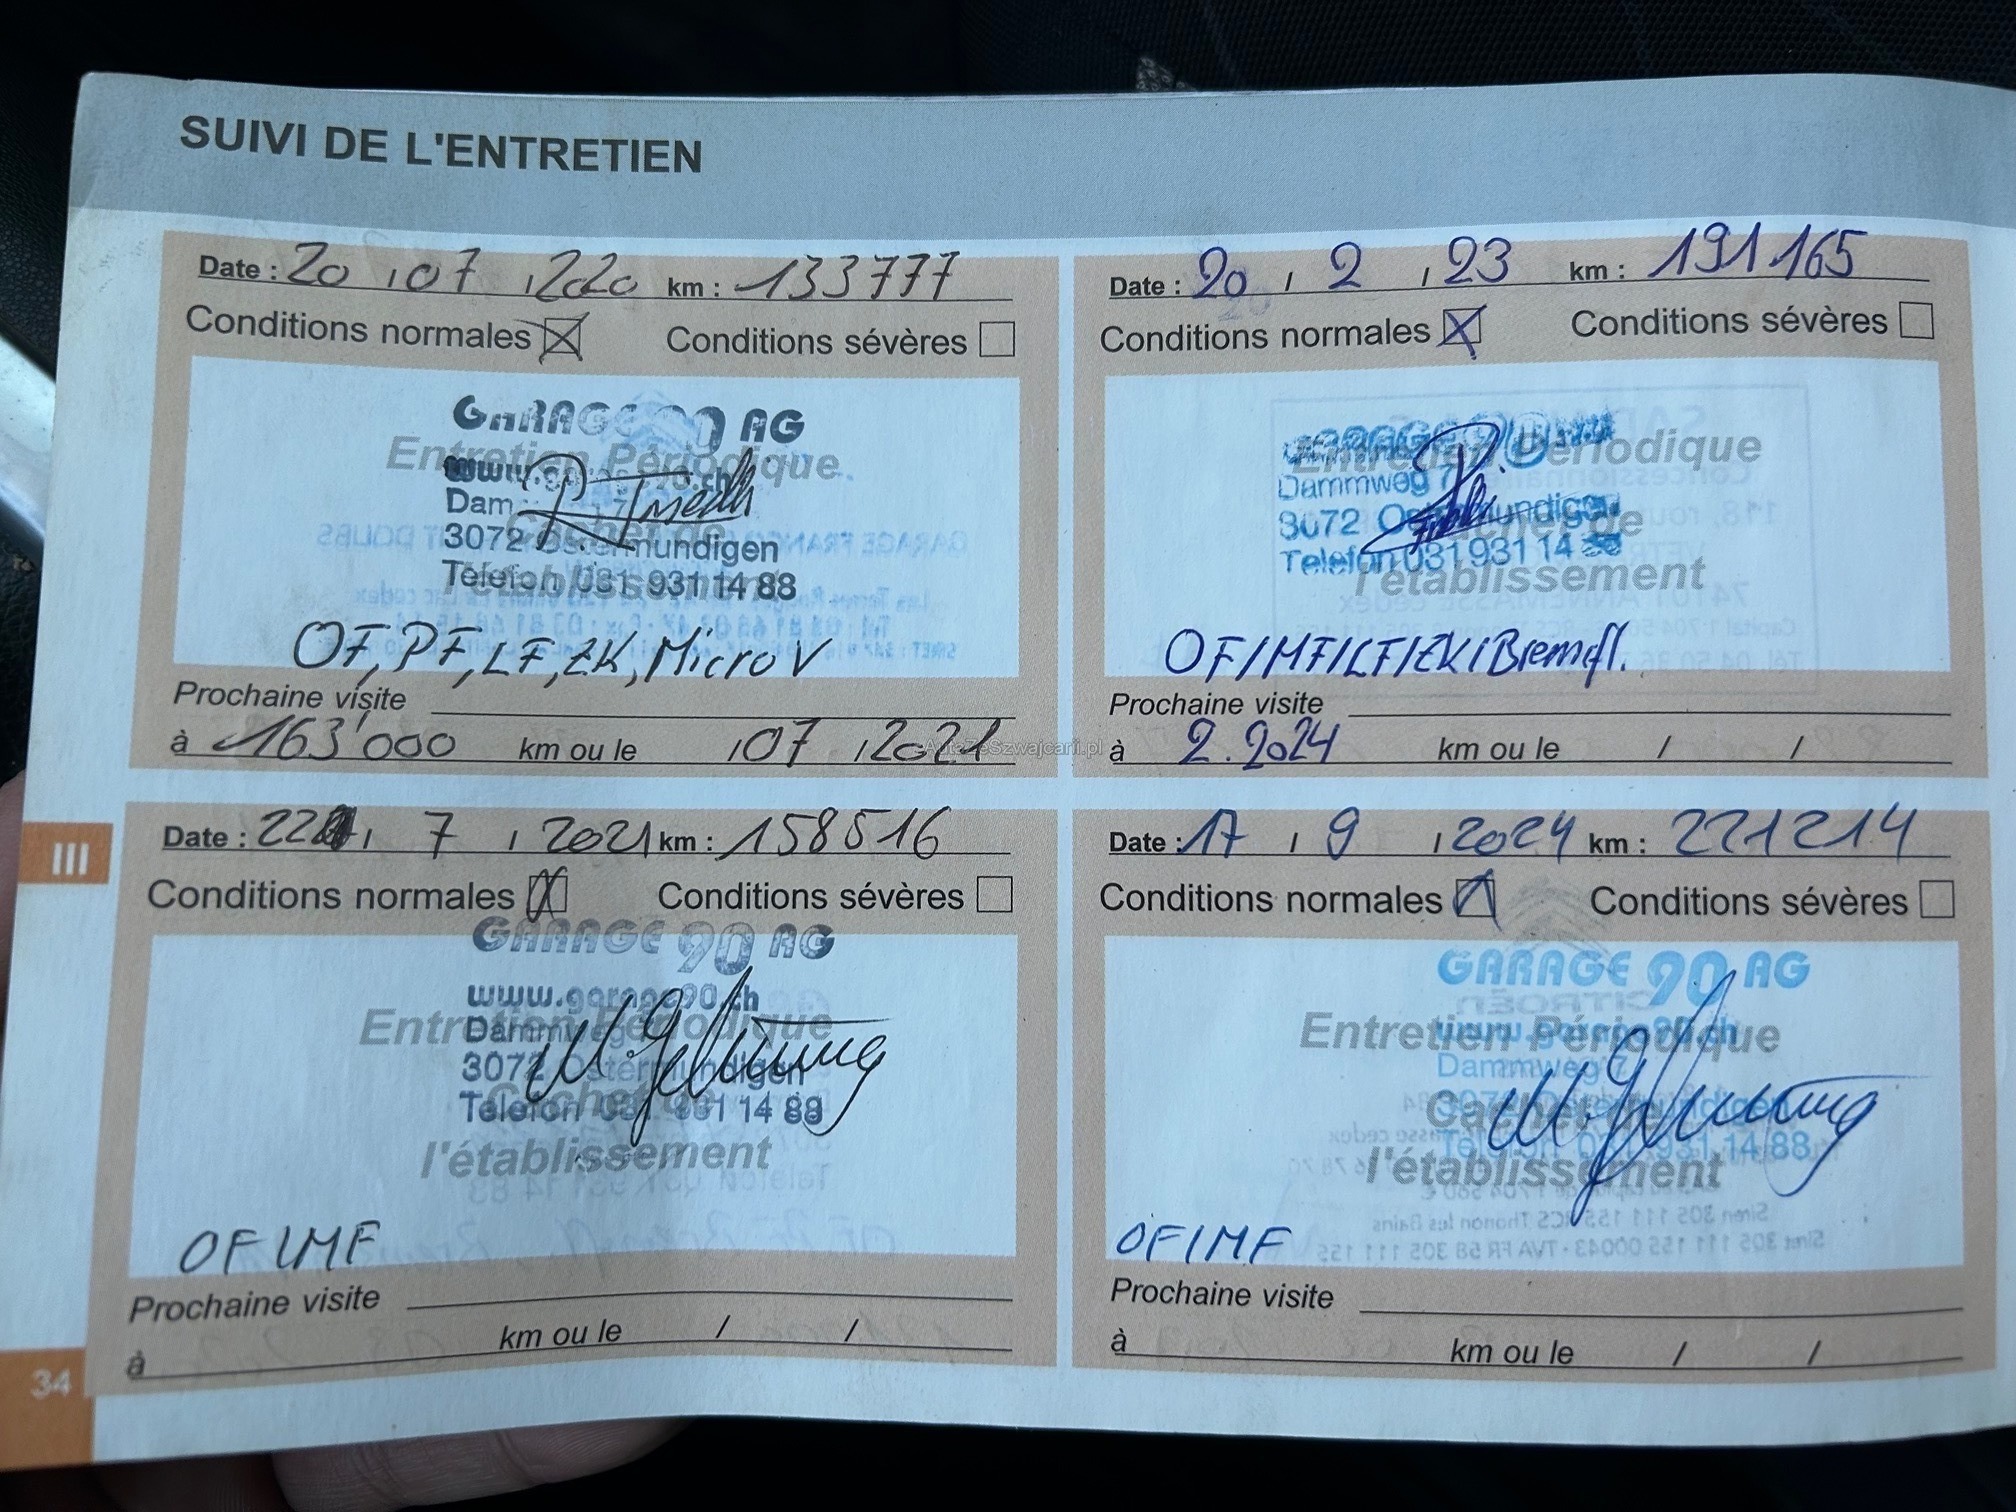 SUIVI DE L'ENTRETIEN
Date : 20 / 07 / 2020 km : 133777
Conditions normales Conditions sévères
GARAGE 90 AG
Entretien Périodique
www.garage90.ch
Dam 7
3072 Ostermundigen
l'établissement
Telefon 031 931 14 88
OF, PF, LF, ZK, Micro V
Prochaine visite
à 163'000 km ou le / 07 / 2021
Date : 22 / 7 / 2021 km : 158516
Conditions normales Conditions sévères
GARAGE 90 AG
www.garage90.ch
Entretien Périodique
Dammweg
3072 Ostermundigen
Cachet de
Telefon 031 931 14 88
l'établissement
OF / MF
Prochaine visite
à km ou le / /
Date : 20 / 2 / 23 km : 191165
Conditions normales Conditions sévères
GARAGE 90
Entretien Périodique
Dammweg 7
3072 Ostermundigen
Cachet de
Telefon 031 931 14
l'établissement
OF/MF/LF/ZK/Bremsfl.
Prochaine visite
à 2.2024 km ou le / /
Date : 17 / 9 / 2024 km : 221214
Conditions normales Conditions sévères
GARAGE 90 AG
Entretien Périodique
www.garage90.ch
Dammweg 7
3072 Ostermundigen
Cachet de
Telefon 031 931 14 88
l'établissement
OF/MF
Prochaine visite
à km ou le / /
III
34
AutoZeSzwajcarii.pl